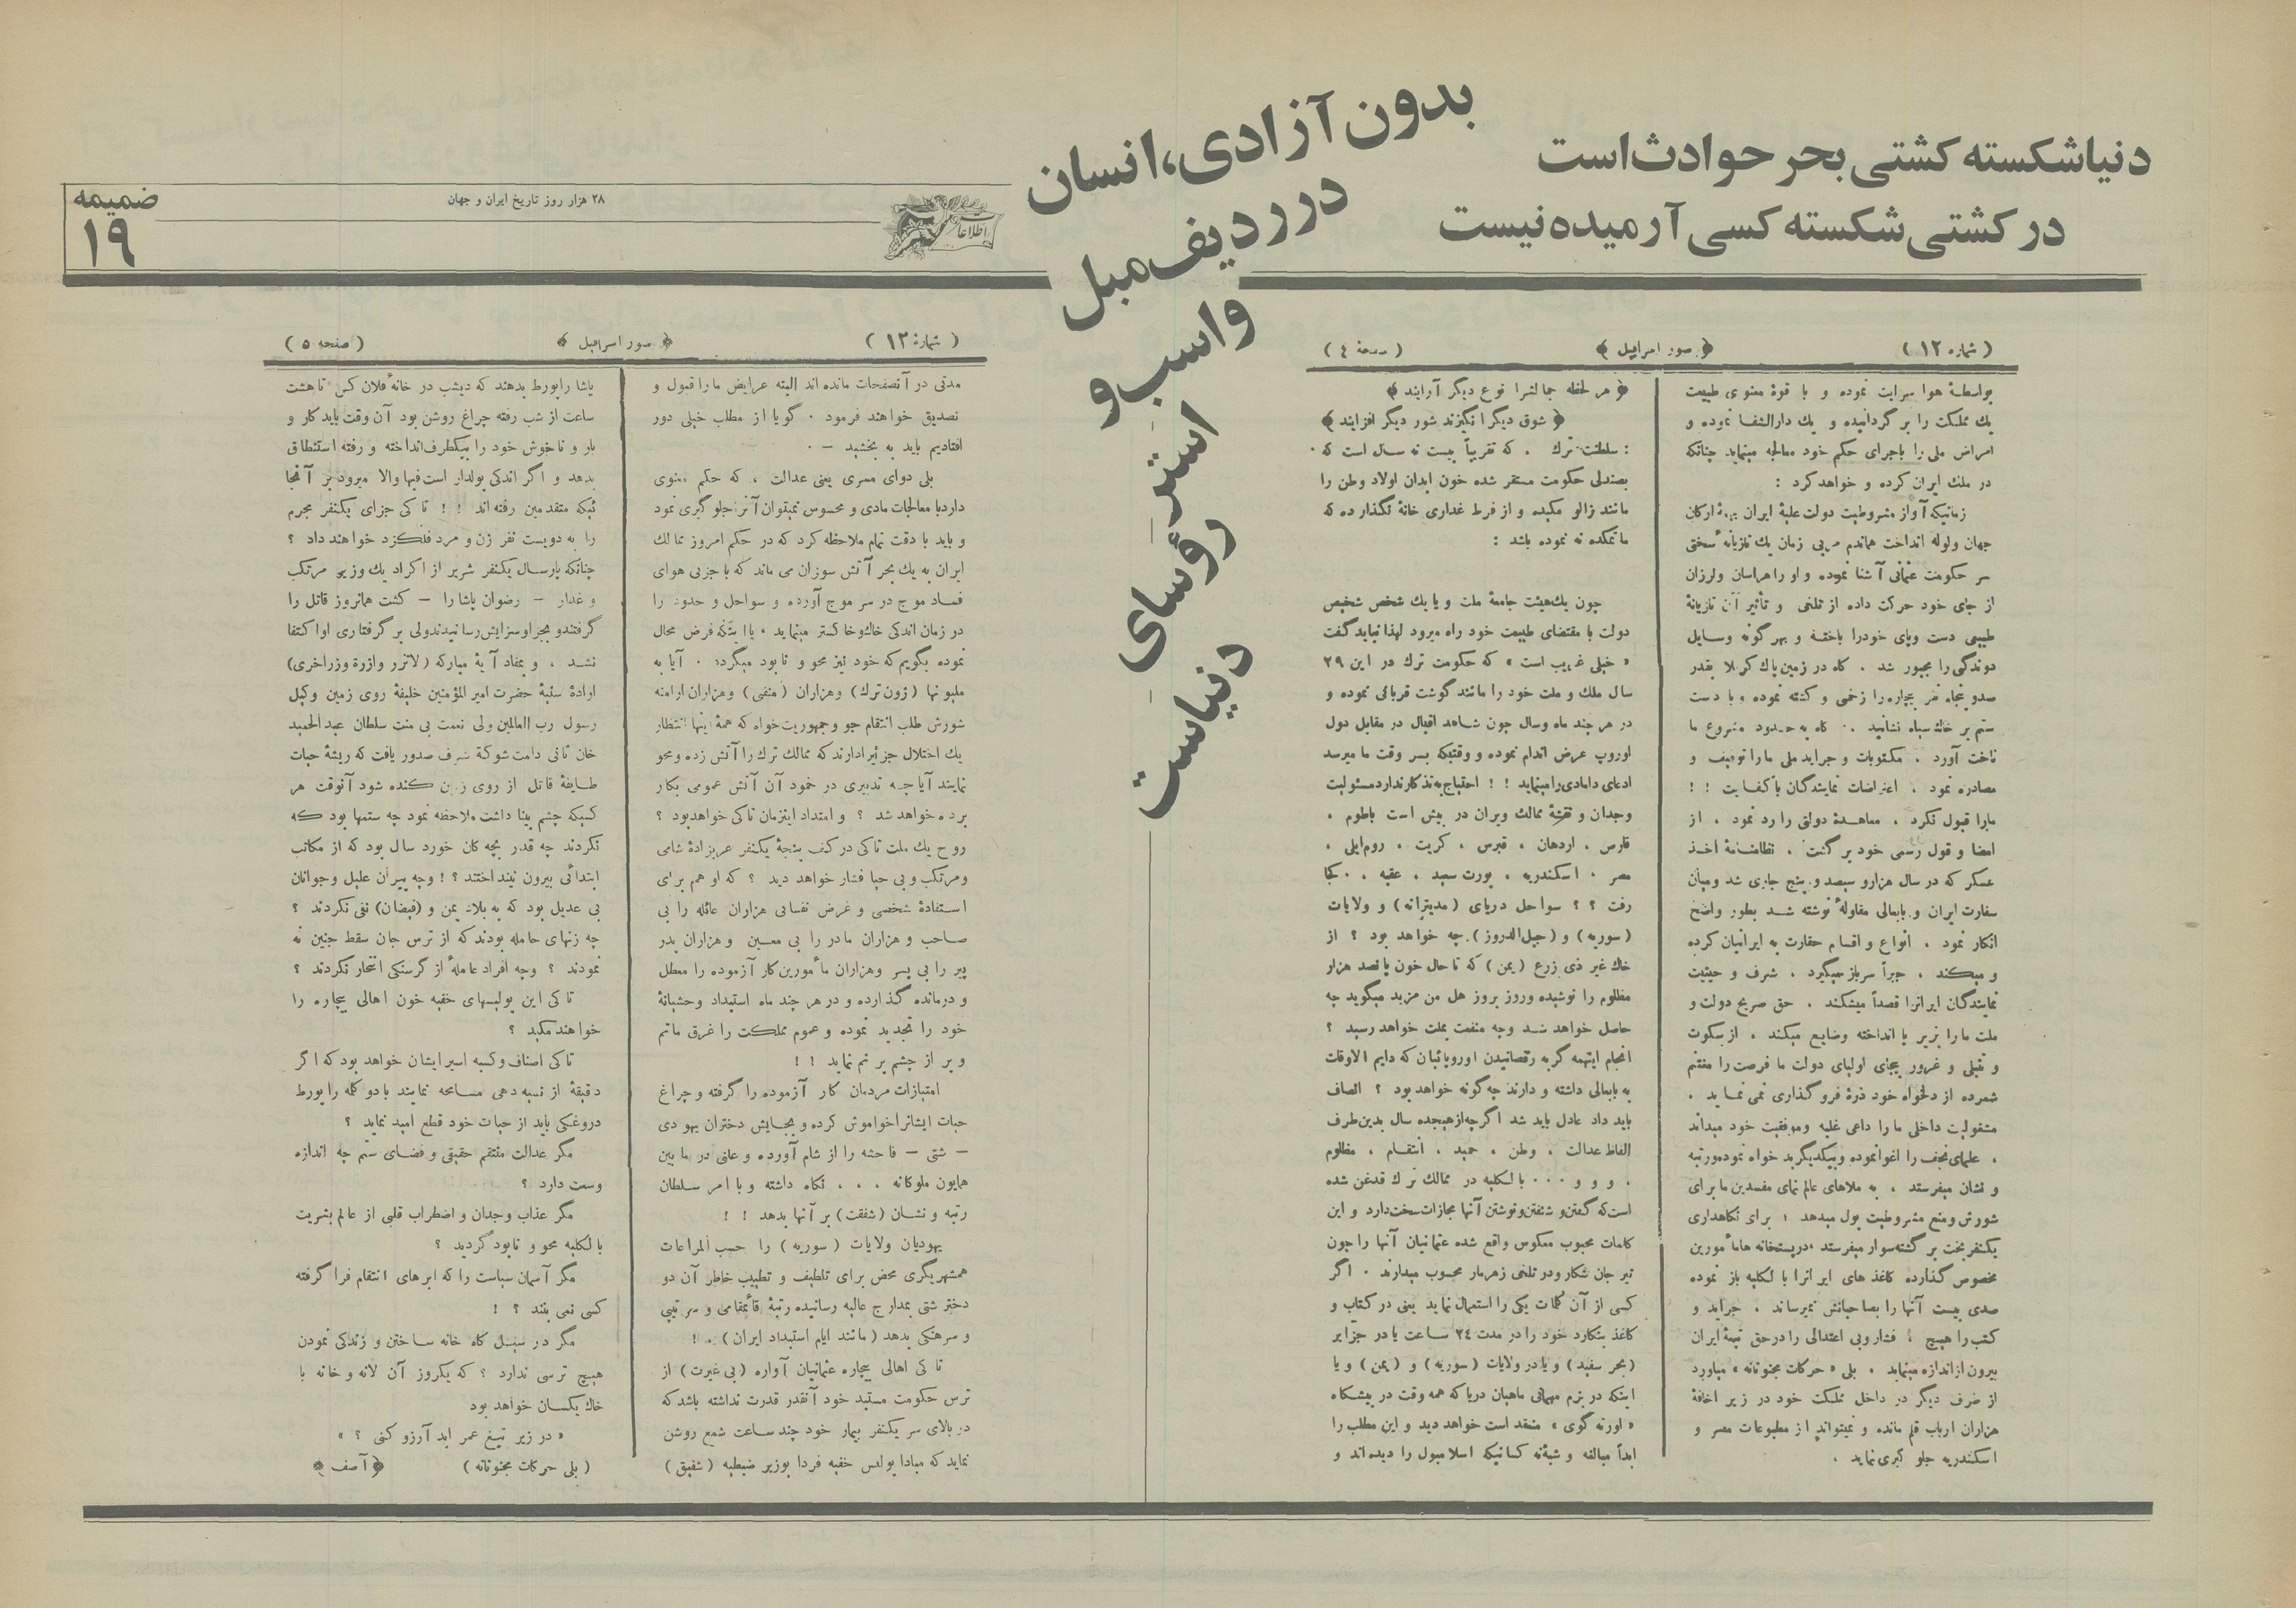 دنیا شکسته کشتی بحر حوادث است
در کشتی شکسته کسی آرمیده نیست
بدون آزادی، انسان
در ردیف مبل
و اسب و
استر
رؤسای
دنیاست
اطلاعات
۲۸ هزار روز تاریخ ایران و جهان
ضمیمه
۱۹
( شماره ۱۲ )
﴿ صور اسرافیل ﴾
( صفحهٔ ٤ )
بواسطهٔ هوا سرایت نموده و با قوهٔ معنوی طبیعت
یك مملکت را بر گردانیده و یك دارالشفا نموده و
امراض ملی را باجرای حکم خود معالجه مینماید چنانکه
در ملك ایران کرده و خواهد کرد :
زمانیکه آواز مشروطیت دولت علیهٔ ایران بهمهٔ ارکان
جهان ولوله انداخت هماندم مربی زمان یك تازیانهٔ سختی
سر حکومت عثمانی آشنا نموده و او را هراسان و لرزان
از جای خود حرکت داده از تلخی و تأثیر آن تازیانهٔ
طبیعی دست و پای خودرا باخته و بهر گونه وسایل
دوندگی را مجبور شد . گاه در زمین پاك کربلا بقدر
صدو پنجاه نفر بیچاره را زخمی و کشته نموده و با دست
ستم بر خاك سیاه نشانید . گاه به حدود مشروع ما
تاخت آورد . مکتوبات و جراید ملی ما را توقیف و
مصادره نمود . اعتراضات نمایندگان با کفایت ! !
مارا قبول نکرد . معاهدهٔ دولتی را رد نمود . از
امضا و قول رسمی خود بر گشت . نظامنامهٔ اخذ
عسکر که در سال هزار و سیصد و پنج جاری شد و میان
سفارت ایران و بابعالی مقاوله نوشته شد بطور واضح
انکار نمود . انواع و اقسام حقارت به ایرانیان کرده
و میکند . جبراً سرباز میگیرد . شرف و حیثیت
نمایندگان ایرانرا قصداً میشکند . حق صریح دولت و
ملت ما را بزیر پا انداخته وضایع میکند . از سکوت
و تنبلی و غرور بیجای اولیای دولت ما فرصت را مغتنم
شمرده از دلخواه خود ذرهٔ فروگذاری نمی نماید .
مشغولیت داخلی ما را داعی غلبه و موفقیت خود میداند
. علمای نجف را اغوا نموده و بیکدیگر بد خواه نموده و رتبه
و نشان میفرستد . به ملاهای عالم نمای مفسدین ما برای
شورش و منع مشروطیت پول میدهد ؛ برای نگاهداری
یکنفر بخت بر گشته سوار میفرستد ، در پستخانه ها مأمورین
مخصوص گذارده کاغذ های ایرانرا بالکلیه باز نموده
صدی بیست آنها را بصاحبانش نمیرساند . جراید و
کتب را هیچ ؛ فشار و بی اعتدالی را در حق تبعهٔ ایران
بیرون از اندازه مینماید . بلی « حرکات مجنونانه » میاورد
از طرف دیگر در داخل مملکت خود در زیر اخافهٔ
هزاران ارباب قلم مانده و نمیتواند از مطبوعات مصر و
اسکندریه جلو گیری نماید .
﴿ هر لحظه جمالشرا نوع دیگر آرایند ﴾
﴿ شوق دیگر انگیزند شور دیگر افزایند ﴾
: سلطنت ترك . که تقریباً بیست نه سال است که .
بصندلی حکومت مستقر شده خون ابدان اولاد وطن را
مانند زالو مکیده و از فرط غداری خانهٔ نگذارده که
ماتمکده نه نموده باشد :
چون یك هیئت جامعهٔ ملت و یا یك شخص شخیص
دولت با مقتضای طبیعت خود راه میرود لهذا نباید گفت
« خیلی غریب است » که حکومت ترك در این ۲۹
سال ملك و ملت خود را مانند گوشت قربانی نموده و
در هر چند ماه و سال چون شاهد اقبال در مقابل دول
اوروپ عرض اندام نموده و وقتیکه بسر وقت ما میرسد
ادعای دامادی را مینماید ! ! احتیاج به تذکار ندارد مسئولیت
وجدان و نقشهٔ ممالك ویران در پیش است باطوم .
قارس . اردهان . قبرس . کریت . روم ایلی .
مصر . اسکندریه . پورت سعید . عقبه . . کجا
رفت ؟ ؟ سواحل دریای (مدیترانه) و ولایات
(سوریه) و (جبل الدروز) چه خواهد بود ؟ از
خاك غیر ذی زرع (یمن) که تا حال خون پانصد هزار
مظلوم را نوشیده و روز بروز هل من مزید میگوید چه
حاصل خواهد شد و چه منفعت بملت خواهد رسید ؟
انجام اینهمه گربه رقصانیدن اوروپائیان که دایم الاوقات
به بابعالی داشته و دارند چه گونه خواهد بود ؟ انصاف
باید داد عادل باید شد اگر چه از هیجده سال بدین طرف
الفاظ عدالت . وطن . حمید . انتقام . مظلوم
. و و و . . . بالکلیه در ممالك ترك قدغن شده
است که گفتن و شنفتن و نوشتن آنها مجازات سخت دارد و این
کلمات محبوب معکوس واقع شده عثمانیان آنها را چون
تیر جان شکار و در تلخی زهرمار محسوب میدارند . اگر
کسی از آن کلمات یکی را استعمال نماید یعنی در کتاب و
کاغذ بنگارد خود را در مدت ۲٤ ساعت یا در جزایر
(بحر سفید) و یا در ولایات (سوریه) و (یمن) و یا
اینکه در بزم مهمانی ماهیان دریا که همه وقت در پیشگاه
« اورته گوی » منعقد است خواهد دید و این مطلب را
ابداً مبالغه و شبهٔ نه کسانیکه اسلامبول را دیده اند و
( شمارهٔ ۱۲ )
﴿ صور اسرافیل ﴾
( صفحهٔ ۵ )
مدتی در آنصفحات مانده اند البته عرایض ما را قبول و
تصدیق خواهند فرمود . گویا از مطلب خیلی دور
افتادیم باید به بخشید - .
بلی دوای مسری یعنی عدالت ، که حکم معنوی
دارد با معالجات مادی و محسوس نمیتوان آنرا جلوگیری نمود
و باید با دقت تمام ملاحظه کرد که در حکم امروز ممالك
ایران به یك بحر آتش سوزان می ماند که با جزیی هوای
فساد موج در سر موج آورده و سواحل و حدود را
در زمان اندکی خاك و خاکستر مینماید . یا اینکه فرض محال
نموده بگویم که خود نیز محو و نابود میگردد . آیا به
ملیونها (ژون ترك) و هزاران (منفی) و هزاران ارامنه
شورش طلب انتقام جو و جمهوریت خواه که همهٔ اینها انتظار
یك اختلال جزئیرا دارند که ممالك ترك را آتش زده و محو
نمایند آیا چه تدبیری در خمود آن آتش عمومی بکار
برده خواهد شد ؟ و امتداد اینزمان تاکی خواهد بود ؟
روح یك ملت تاکی در کف پنجهٔ یکنفر عربزادهٔ شامی
و مرتکب و بی حیا فشار خواهد دید ؟ که او هم برای
استفادهٔ شخصی و غرض نفسانی هزاران عائله را بی
صاحب و هزاران مادر را بی معین و هزاران پدر
پیر را بی پسر و هزاران مأمورین کار آزموده را معطل
و درمانده گذارده و در هر چند ماه استبداد وحشیانهٔ
خود را تجدید نموده و عموم مملکت را غرق ماتم
و پر از چشم پر نم نماید ! !
امتیازات مردمان کار آزموده را گرفته و چراغ
حیات ایشانرا خواموش کرده و بجایش دختران یهودی
— شتی — فاحشه را از شام آورده و علنی در مابین
همایون ملوکانه . . . نگاه داشته و با امر سلطان
رتبه و نشان (شفقت) بر آنها بدهد ! !
یهودیان ولایات (سوریه) را حسب المراعات
همشهریگری محض برای تلطیف و تطییب خاطر آن دو
دختر شتی بمدارج عالیه رسانیده رتبهٔ قائمقامی و سرتیپی
و سرهنگی بدهد (مانند ایام استبداد ایران) . !
تا کی اهالی بیچاره عثمانیان آواره (بی غیرت) از
ترس حکومت مستبد خود آنقدر قدرت نداشته باشد که
در بالای سر یکنفر بیمار خود چند ساعت شمع روشن
نماید که مبادا پولیس خفیه فردا بوزیر ضبطیه (شفیق)
پاشا راپورط بدهند که دیشب در خانهٔ فلان کس تا هشت
ساعت از شب رفته چراغ روشن بود آن وقت باید کار و
بار و ناخوش خود را بیکطرف انداخته و رفته استنطاق
بدهد و اگر اندکی پولدار است فبها والا میرود بز آنجا
ئیکه متقدمین رفته اند ! ! تا کی جزای یکنفر مجرم
را به دویست نفر زن و مرد فلکزد خواهند داد ؟
چنانکه پارسال یکنفر شریر از اکراد یك وزیر مرتکب
و غدار — رضوان پاشا را — کشت همانروز قاتل را
گرفتند و بجز او سزایش رسانیدند ولی بر گرفتاری او اکتفا
نشد . و بمفاد آیهٔ مبارکه (لاتزر وازرة وزر اخری)
ارادهٔ سنیهٔ حضرت امیر المؤمنین خلیفهٔ روی زمین وکیل
رسول رب العالمین ولی نعمت بی منت سلطان عبد الحمید
خان ثانی دامت شوکة شرف صدور یافت که ریشهٔ حیات
طایفهٔ قاتل از روی زمین کنده شود آنوقت هر
کسیکه چشم بینا داشت ملاحظه نمود چه ستمها بود که
نکردند چه قدر بچه کان خورد سال بود که از مکاتب
ابتدائی بیرون نینداختند ؟ ! و چه پیران علیل و جوانان
بی عدیل بود که به بلاد یمن و (فیضان) نفی نکردند ؟
چه زنهای حامله بودند که از ترس جان سقط جنین نه
نمودند ؟ و چه افراد عامله از گرسنگی انتحار نکردند ؟
تا کی این پولیسهای خفیه خون اهالی بیچاره را
خواهند مکید ؟
تا کی اصناف و کسبه اسیر ایشان خواهد بود که اگر
دقیقهٔ از نسیه دهی مسامحه نمایند با دو کله راپورط
دروغکی باید از حیات خود قطع امید نماید ؟
مگر عدالت منتقم حقیقی و فضای ستم چه اندازه
وسعت دارد ؟
مگر عذاب وجدان و اضطراب قلبی از عالم بشریت
بالکلیه محو و نابود گردید ؟
مگر آسمان سیاست را که ابرهای انتقام فرا گرفته
کسی نمی بیند ؟ !
مگر در سبیل گاه خانه ساختن و زندگی نمودن
هیچ ترسی ندارد ؟ که یکروز آن لانه و خانه با
خاك یکسان خواهد بود
« در زیر تیغ عمر ابد آرزو کنی ؟ »
( بلی حرکات مجنونانه ) ﴿ آصف ﴾